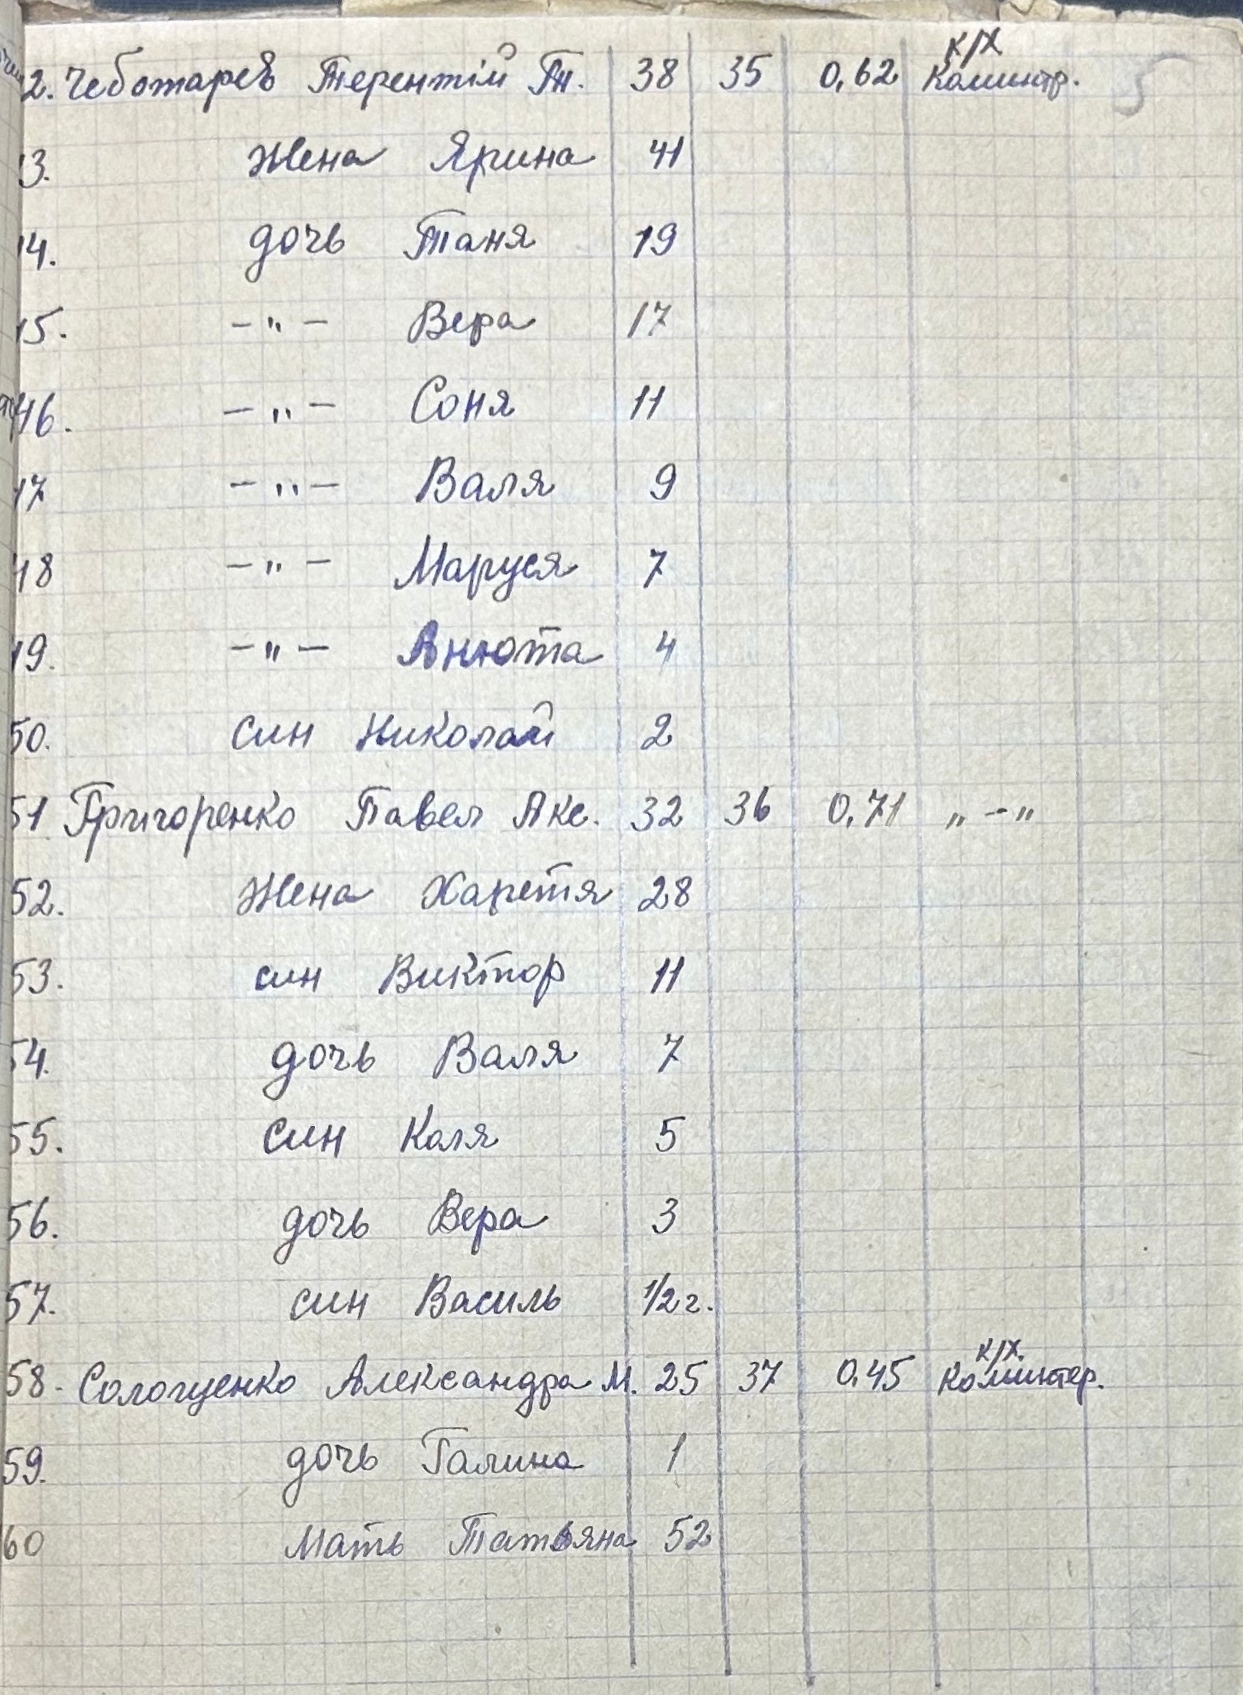 к/х
2. Чеботарев Терентій Т. 38 35 0,62 Комінтр.
43. Жена Ярина 41
44. дочь Таня 19
45. —"— Вера 17
46. —"— Соня 11
47 —"— Валя 9
48 —"— Маруся 7
49. —"— Анюта 4
50. син Николай 2
51 Григоренко Павел Акс. 32 36 0,71 „ — "
52. Жена Харетя 28
53. син Виктор 11
54. дочь Валя 7
55. син Коля 5
56. дочь Вера 3
57. син Василь 1/2 г.
к/х.
58. Сологуенко Александра М. 25 37 0,45 Комінтер.
59. дочь Галина 1
60 Мать Татьяна 52